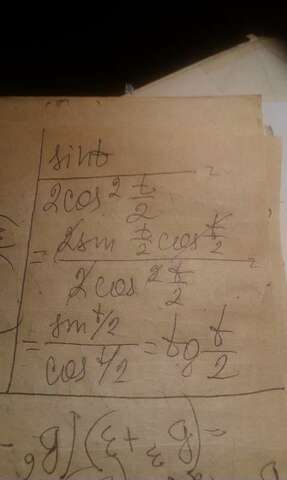 sint
2cos² t/2 =
= 2sin t/2 cos t/2
2cos² t/2 =
= sin t/2
cos t/2 = tg t/2
= (b³+3)(b⁶-